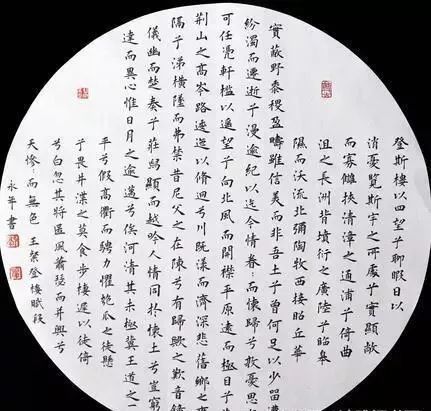 登斯樓以四望兮聊暇日以
消憂覽斯宇之所處兮實顯敞
而寡儔挾清漳之通浦兮倚曲
沮之長洲背墳衍之廣陸兮臨皋
隰而沃流北彌陶牧西接昭丘華
實蔽野黍稷盈疇雖信美而非吾土兮曾何足以少留遭
紛濁而遷逝兮漫逾紀以迄今情眷:而懷歸兮孰憂思
可任憑軒檻以遙望兮向北風而開襟平原遠而極目兮
荊山之高岑路逶迤以修迥兮川既漾而濟深悲舊鄉之
隔兮涕橫墜而弗禁昔尼父之在陳兮有歸歟之歎音鍾
儀幽而楚奏兮莊舄顯而越吟人情同於懷土兮豈窮
達而異心惟日月之逾邁兮俟河清其未極冀王道之一
平兮假高衢而騁力懼匏瓜之徒懸
兮畏井渫之莫食步棲遲以徙倚
兮白忽其將匿風蕭瑟而並興兮
天慘:而無色 王粲登樓賦段
永年書